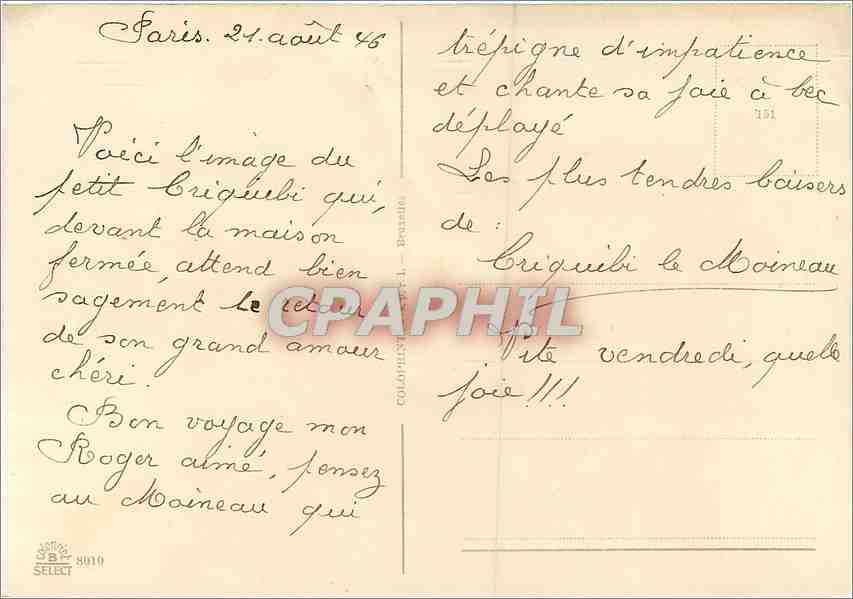 Paris. 21. août 46
Voici l'image du
petit Criquibi qui,
devant la maison
fermée, attend bien
sagement le retour
de son grand amour
chéri.
Bon voyage mon
Roger aimé, pensez
au Moineau qui
trépigne d'impatience
et chante sa joie à bec
déployé
Les plus tendres baisers
de :
Criquibi le Moineau
Vite vendredi, quelle
joie !!!
151
COLOPRINT
1. — Bruxelles
CPAPHIL
B
SELECT
8010